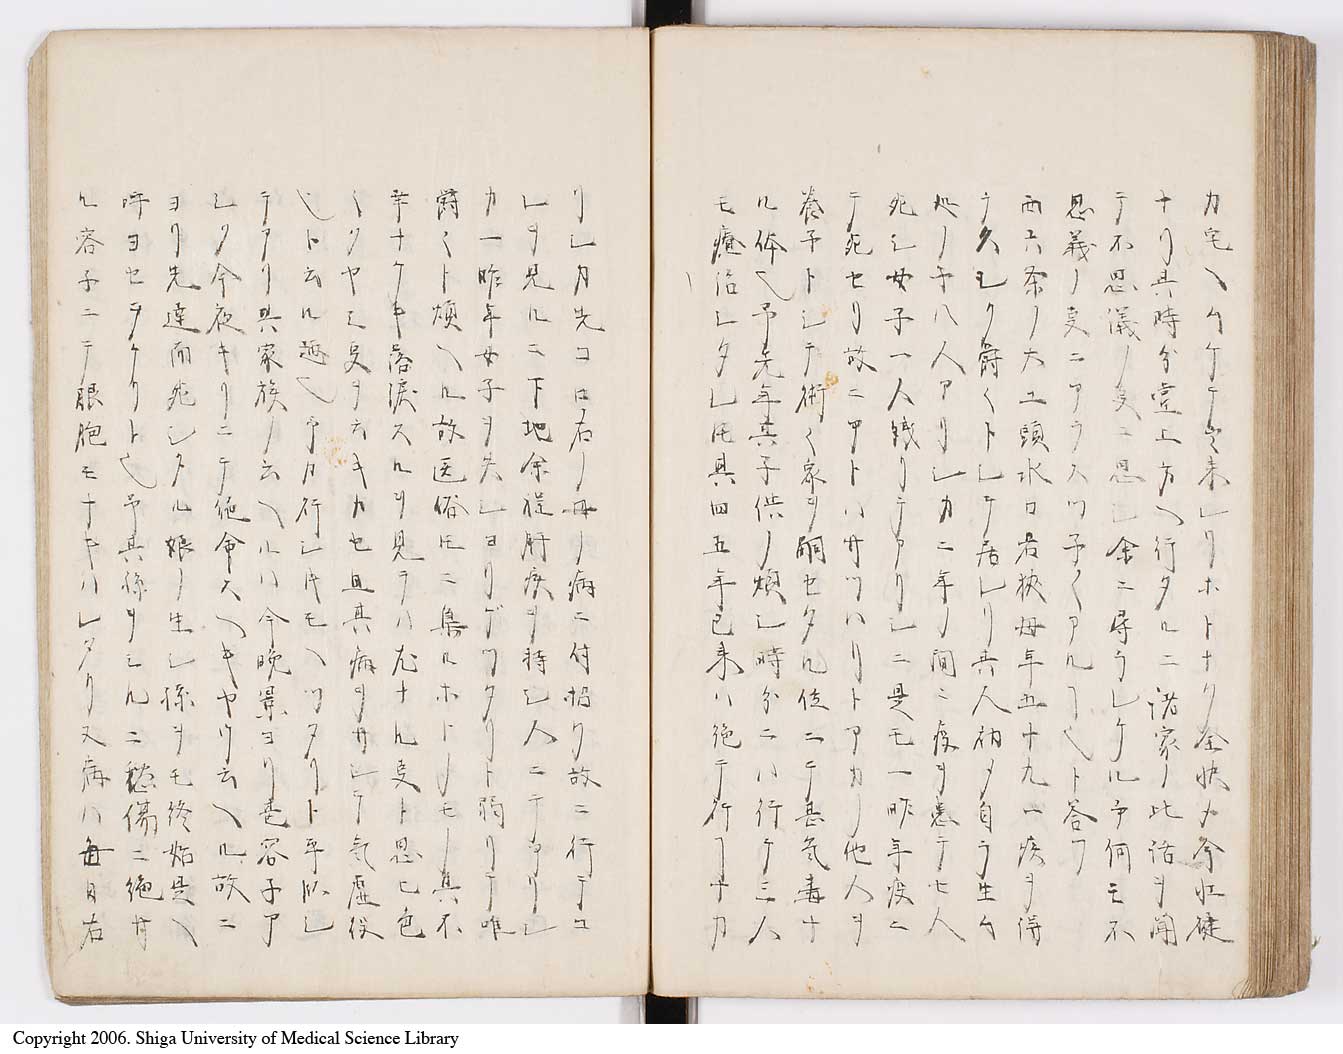 カ宅ヘムケテ出来シリホトナク全快メ今壮健
ナリ其時分堂上方ヘ行タルニ諸家ノ此話ヲ聞
テ不思儀ノ叓ニ思シ余ニ尋ラレケル予何モ不
思義ノ叓ニアラスツ子〱アルヿ也ト答フ
西六条ノ大工頭水口若狹母年五十九一疾ヲ得
テ久シク欝〱トシテ居レリ其人初メ自ラ生ム
処ノ子八人アリシカ二年ノ間ニ疫ヲ患テ七人
死シ女子一人残リテアリシニ是モ一昨年疫ニ
テ死セリ故ニアトハサツハリトアカノ他人ヲ
養子トシテ術〱家ヲ嗣セタル位ニテ甚気毒ナ
ル体也予先年其子供ノ煩シ時分ニハ行テ三人
モ療治シタレ𪜈其四五年已来ハ絶テ行ヿナカ
リシカ先コロ右ノ母ノ病ニ付招ク故ニ行テコ
レヲ見ルニ下地余程肝疾ヲ持シ人ニテアリシ
カ一昨年女子ヲ失シヨリグツタリト弱リテ唯
欝〱ト煩ヘル故医俗𪜈ニ集ルホトノモノ其不
幸ナケキ落涙スルヲ見テハ尤ナル叓ト思ヒ色
〱クヤミ叓ヲ云キカセ且其病ヲサシテ気虚役
シト云ル趣也予カ行シ片モヘツタリト平臥シ
テアリ其家族ノ云ヘルハ今晩景ヨリ悪容子ア
シク今夜キリニテ絶命スヘキヤウ云ヘル故ニ
ヨリ先達而死シタル娘ノ生シ孫ヲモ終始是ヘ
呼ヨセヲケリト也予其孫ヲミルニ愁傷ニ絶サ
ル容子ニテ眼胞モナキハレタリ又病ハ毎日右